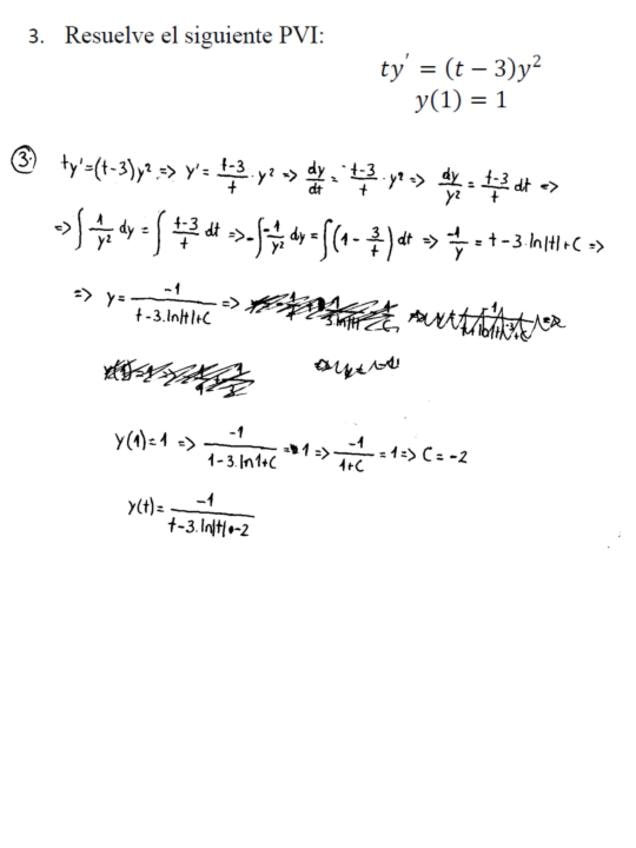 3. Resuelve el siguiente PVI:
ty′ = (t − 3)y²
y(1) = 1
③ ty'=(t-3)y² => y' = t-3/t · y² => dy/dt = t-3/t · y² => dy/y² = t-3/t dt =>
=> ∫ 1/y² dy = ∫ t-3/t dt => -∫ -1/y² dy = ∫(1 - 3/t) dt => -1/y = t - 3·ln|t| + C =>
=> y = -1/t-3.ln|t|+C =>
y(1)=1 => -1/1-3.ln1+C = 1 => -1/1+C = 1 => C = -2
y(t) = -1/t-3.ln|t|-2